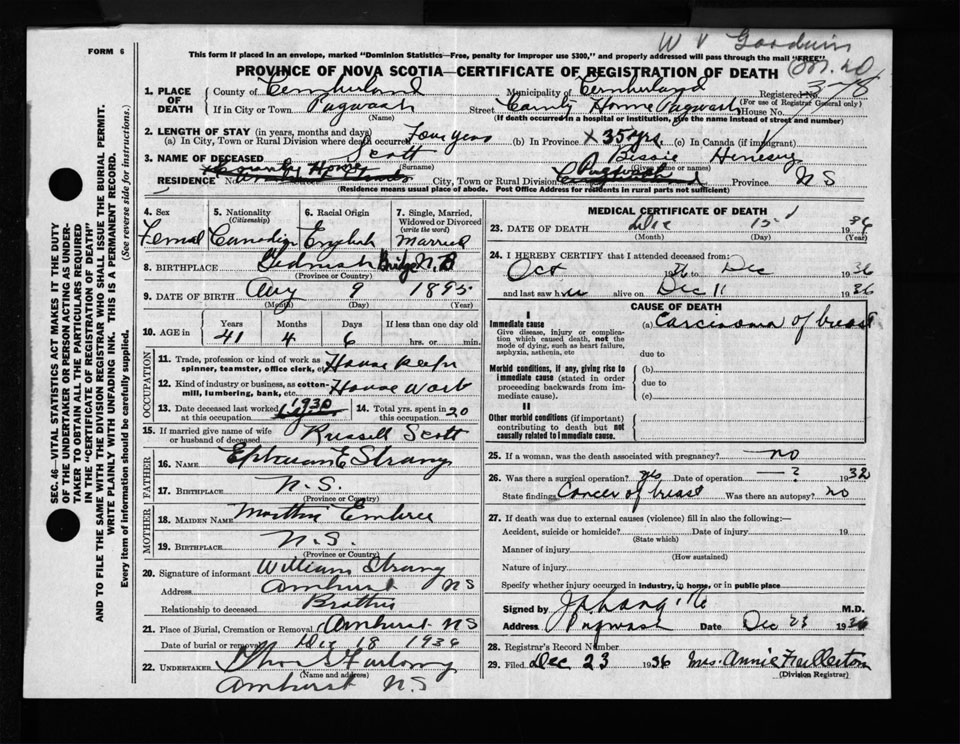 W V Goodwin
FORM 6
This form if placed in an envelope, marked "Dominion Statistics—Free, penalty for improper use $300," and properly addressed will pass through the mail "FREE"
PROVINCE OF NOVA SCOTIA—CERTIFICATE OF REGISTRATION OF DEATH
1. PLACE OF DEATH
County of Cumberland Municipality of Cumberland Registered No.
If in City or Town Pugwash Street County Home Pugwash House No.
(For use of Registrar General only)
(Name) (If death occurred in a hospital or institution, give the name instead of street and number)
2. LENGTH OF STAY (in years, months and days)
(a) In City, Town or Rural Division where death occurred Four years (b) In Province X 35 yrs. (c) In Canada (if immigrant)
3. NAME OF DECEASED Scott Bessie
(Surname) (Given name or names)
RESIDENCE No. City, Town or Rural Division Pugwash Province N S
(Residence means usual place of abode. Post Office Address for residents in rural parts not sufficient)
4. Sex
Femal
5. Nationality (Citizenship)
Canadian
6. Racial Origin
English
7. Single, Married, Widowed or Divorced (write the word)
Married
8. BIRTHPLACE Bridge N.B
(Province or Country)
9. DATE OF BIRTH Aug 9 1895
(Month) (Day) (Year)
10. AGE in
Years Months Days If less than one day old
41 4 6 hrs. or min.
OCCUPATION
11. Trade, profession or kind of work as spinner, teamster, office clerk, etc. House keeper
12. Kind of industry or business, as cotton-mill, lumbering, bank, etc. House work
13. Date deceased last worked at this occupation 1930
14. Total yrs. spent in this occupation 20
15. If married give name of wife or husband of deceased Russell Scott
FATHER
16. NAME Strang
17. BIRTHPLACE N.S.
(Province or Country)
MOTHER
18. MAIDEN NAME Embree
19. BIRTHPLACE N.S.
(Province or Country)
20. Signature of informant William Strang
Address Amherst N S
Relationship to deceased Brother
21. Place of Burial, Cremation or Removal Amherst N S
Date of burial or removal Dec 18 1936
22. UNDERTAKER
(Name and address)
Amherst N.S
MEDICAL CERTIFICATE OF DEATH
23. DATE OF DEATH Dec 15 1936
(Month) (Day) (Year)
24. I HEREBY CERTIFY that I attended deceased from:
Oct 1936 to Dec 1936
and last saw her alive on Dec 11 1936
CAUSE OF DEATH
I
Immediate cause
Give disease, injury or complication which caused death, not the mode of dying, such as heart failure, asphyxia, asthenia, etc
(a) Carcinoma of breast
due to
Morbid conditions, if any, giving rise to immediate cause (stated in order proceeding backwards from immediate cause).
(b)
due to
(c)
II
Other morbid conditions (if important) contributing to death but not causally related to immediate cause.
25. If a woman, was the death associated with pregnancy? no
26. Was there a surgical operation? yes Date of operation — ? 1932
State findings Cancer of breast Was there an autopsy? no
27. If death was due to external causes (violence) fill in also the following:—
Accident, suicide or homicide? Date of injury 19
(State which)
Manner of injury
(How sustained)
Nature of injury
Specify whether injury occurred in industry, in home, or in public place
Signed by M.D.
Address Pugwash Date Dec 23 1936
28. Registrar's Record Number
29. Filed Dec 23 1936 Mrs. Annie Fullerton
(Division Registrar)
SEC. 46—VITAL STATISTICS ACT MAKES IT THE DUTY
OF THE UNDERTAKER OR PERSON ACTING AS UNDER-
TAKER TO OBTAIN ALL THE PARTICULARS REQUIRED
IN THE "CERTIFICATE OF REGISTRATION OF DEATH"
AND TO FILE THE SAME WITH THE DIVISION REGISTRAR WHO SHALL ISSUE THE BURIAL PERMIT.
WRITE PLAINLY WITH UNFADING INK. THIS IS A PERMANENT RECORD.
Every item of information should be carefully supplied. (See reverse side for instructions.)